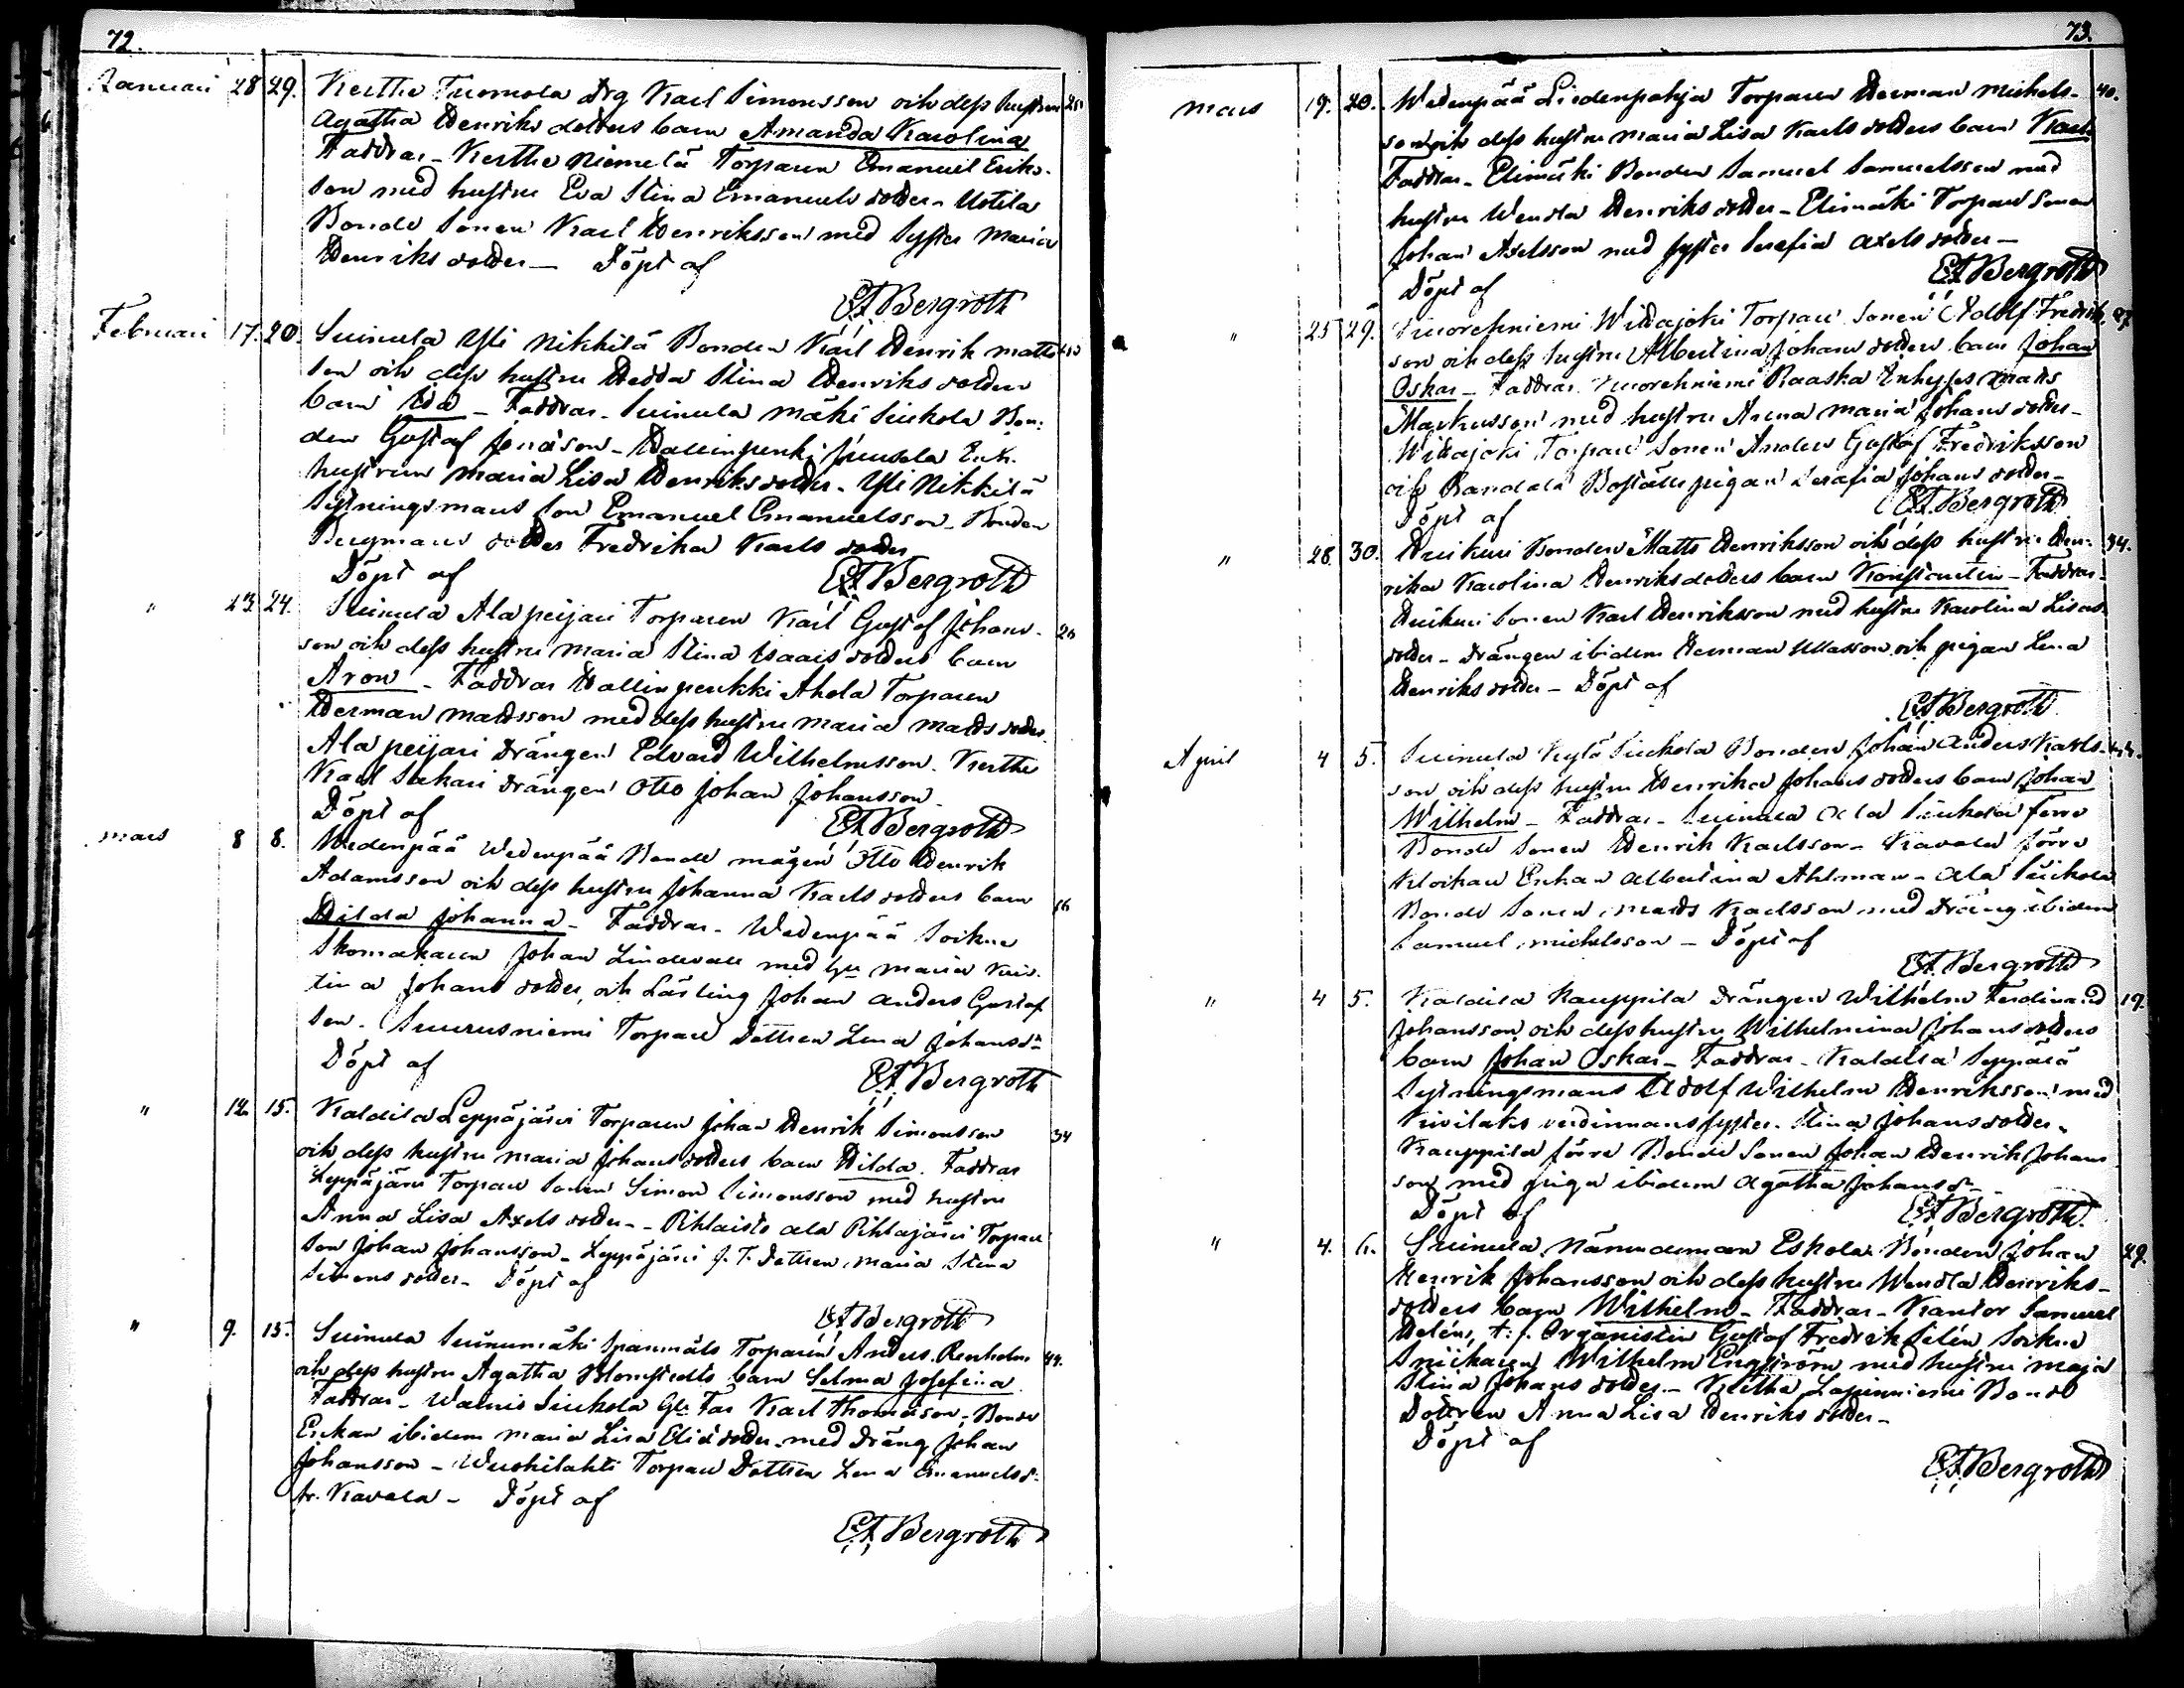 72.
Januari 28 29. Kerttu Tuomola Drg Karl Simonsson och dess hustru
Agatha Henriks dotters barn Amanda Karolina
Faddrar - Kerttu Niemelä Torparen Emanuel Eriks-
son med hustru Eva Stina Emanuels dotter - Uotila
Bonde Sonen Karl Henriksson med Syster Maria
Henriks dotter - Döpt af
E.F. Bergroth
Februari 17. 20. Suinula Yli Nikkilä Bonden Karl Henrik Matts
son och dess hustru Hedda Stina Henriks dotters
barn Ida - Faddrar - Suinula Mäki Siukola Bon-
den Gustaf Jonasson - Hallinpenkki Juusela Enk-
hustrun Maria Lisa Henriks dotter - Yli Nikkilä
Sytningsmans Son Emanuel Emanuelsson - Bonden
dotter Fredrika Karls dotter
Döpt af
E.F. Bergroth
" 23. 24. Suinula Alapeijari Torparen Karl Gustaf Johans- 26
son och dess hustru Maria Stina Isaacs dotters barn
Aron - Faddrar Hallinpenkki Ahola Torparen
Herman Mattsson med dess hustru Maria Matts dotter
Alapeijari Drängen Edvard Wilhelmsson - Kerttu
Karl Sakari Drängen Otto Johan Johansson -
Döpt af
E.F. Bergroth
Mars 8 8. Wedenpää Wedenpää Bonde mågen Otto Henrik
Adamsson och dess hustru Johanna Karls dotters barn
Hilda Johanna - Faddrar - Wedenpää Sockne
Skomakaren Johan Lindevall med hu Maria Kris-
tina Johans dotter, och Lärling Johan Anders Gustaf
son - Suurusniemi Torpare Dottren Lena Johansdr
Döpt af
E.F. Bergroth
" 12. 15. Kaldila Leppäjärvi Torparen Johan Henrik Simonsson 34
och dess hustru Maria Johans dotters barn Hilda. Faddrar
Leppäjärvi Torpare Sonen Simon Simonsson med hustru
Anna Lisa Axels dotter - Pihlaisto Ala Pihlajärvi Torpare
Son Johan Johansson - Leppäjärvi f. T. Dottren Maria Stina
Simons dotter - Döpt af
E.F. Bergroth
" 9. 15. Suinula Suinumäki Spanmåls Torparen Anders Renholm 44.
och dess hustru Agatha Blomstedts barn Selma Josefina
Faddrar - Wainio Siukola Gl. Far Karl Thomasson - Bonde
Enkan ibidem Maria Lisa Elias dotter med Dräng Johan
Johansson - Wuohilahti Torpare Dottren Lena Emanuelsd-
fr. Kavala - Döpt af
E.F. Bergroth
73.
Mars 19. 20. Wedenpää Liedenpohja Torparen Herman Michels- 40.
son och dess hustru Maria Lisa Karls dotters barn Karl
Faddrar - Elimäki Bonden Samuel Samuelsson med
hustru Wendla Henriks dotter - Elimäki Torpare Sonen
Johan Axelsson med Syster Serafia Axels dotter -
Döpt af
E.F. Bergroth
" 25 29. Vuorehniemi Witajoki Torpare Sonen Adolf Fredrik-
son och dess hustru Albertina Johans dotters barn Johan
Oskar - Faddrar. Vuorehniemi Raaska Inhyses Matts
Markusson med hustru Anna Maria Johans dotter -
Witajoki Torpare Sonen Anders Gustaf Fredriksson
och Randala Boställs pigan Serafia Johans dotter -
Döpt af
E.F. Bergroth
" 28. 30. Huikuri Bonden Matts Henriksson och dess hustru Hen- 34.
rika Karolina Henriks dotters barn Konstantin - Faddrar -
Huikuri Sonen Karl Henriksson med hustru Karolina Lisas
dotter - Drängen ibidem Herman Mattsson och pigan Lena
Henriks dotter - Döpt af
E.F. Bergroth
April 4 5. Suinula Kylä Siukola Bonden Johan Anders Karls- 44.
son och dess hustru Henrika Johans dotters barn Johan
Wilhelm - Faddrar - Suinula Ala Siukola förre
Bonde Sonen Henrik Karlsson - Kavala förre
Klockare Enkan Albertina Ahlman - Ala Siukola
Bonde Sonen Matts Karlsson med Dräng ibidem
Samuel Michelsson - Döpt af
E.F. Bergroth
" 4 5. Kaldila Kauppila Drängen Wilhelm Ferdinand 19.
Johansson och dess hustru Wilhelmina Johans dotters
barn Johan Oskar - Faddrar - Kaldila Seppälä
Sytningsmans Adolf Wilhelm Henriksson med
Kivilaks syster Stina Johans dotter.
Kauppila förre Bonde Sonen Johan Henrik Johans
son med piga ibidem Agatha Johansdr
Döpt af
E.F. Bergroth
" 4. 6. Suinula Nämndeman Eskola Bonden Johan 29.
Henrik Johansson och dess hustru Wendla Henriks-
dotters barn Wilhelm - Faddrar - Kantor Samuel
Helén, t. f. Organisten Gustaf Fredrik Silén, Sockne
Snickaren Wilhelm Engström med hustru Maja
Stina Johans dotter - Kerttu Lapinniemi Bonde
Dottren Anna Lisa Henriks dotter -
Döpt af
E.F. Bergroth